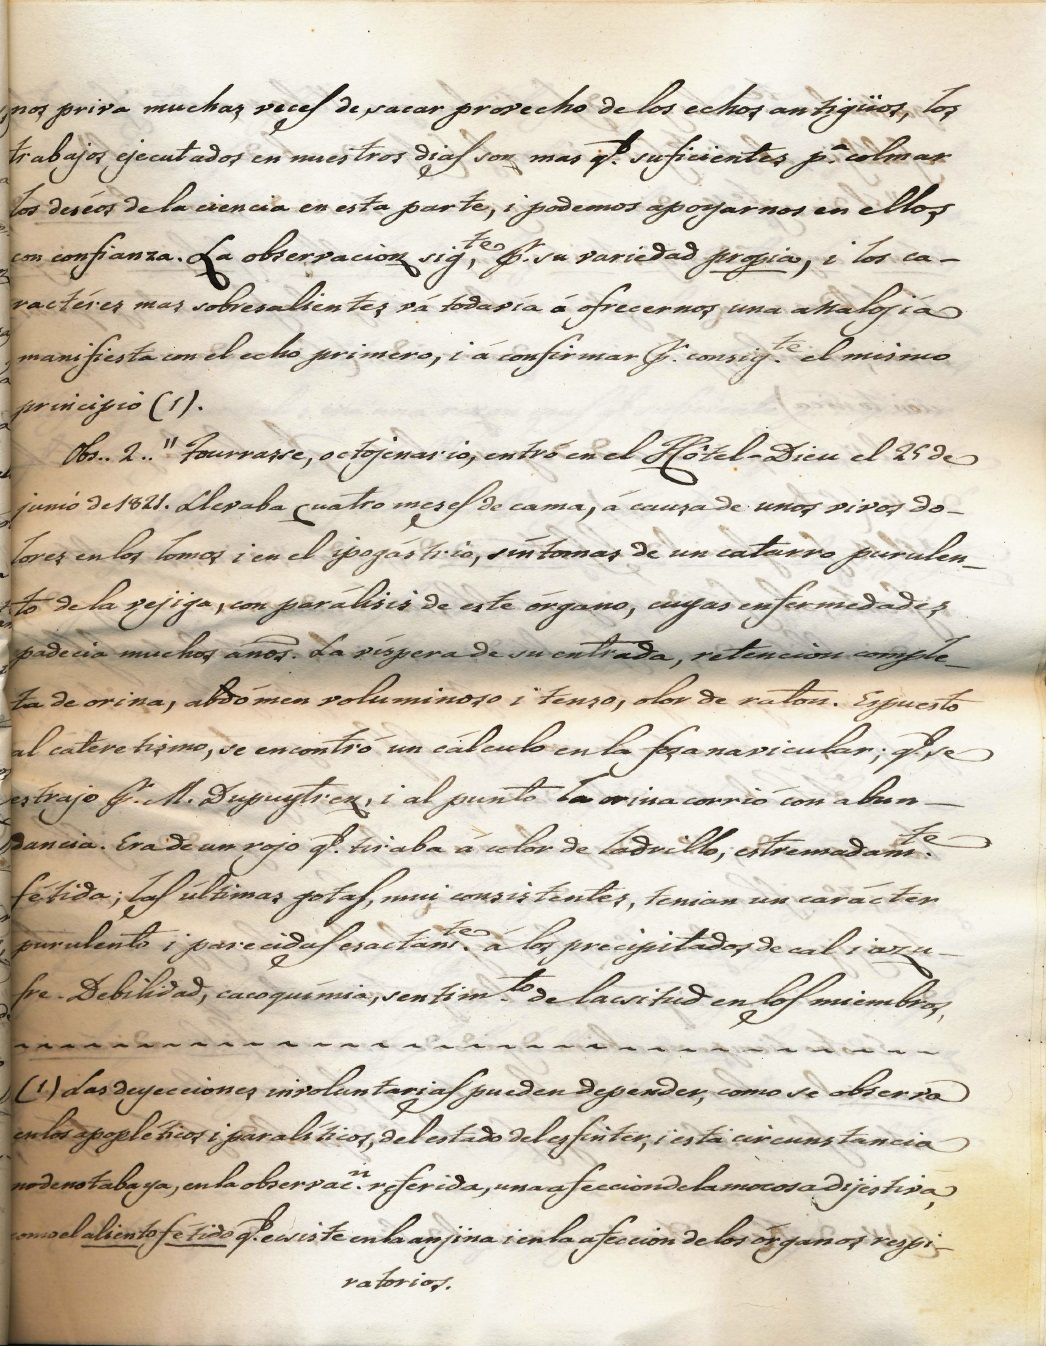 nos priva muchas veces de sacar provecho de los echos antigüos, los
trabajos ejecutados en nuestros dias son mas q.e suficientes p.a colmar
los deséos de la ciencia en esta parte, i podemos apoyarnos en ellos
con confianza. La observacion sig.te, p.r su variedad propia, i los ca-
ractéres mas sobresalientes vá todavía á ofrecernos una analojía
manifiesta con el echo primero, i á confirmar p.r consig.te el mismo
principio (1).
Obs.. 2.." Tourrasse, octojenario, entró en el Hôtel-Dieu el 25 de
junio de 1821. Llevaba cuatro meses de cama, á causa de unos vivos do-
lores en los lomos i en el ipogástrio, síntomas de un catarro purulen-
to de la vejiga, con parálisis de este órgano, cuyas enfermedades
padecia muchos años. La víspera de su entrada, retencion comple-
ta de orina, abdómen voluminoso i tenso, olor de raton. Espuesto
al cateretismo, se encontró un cálculo en la fosa navicular; q.e se
estrajo p.r M. Dupuytren, i al punto la orina corrió con abun-
dancia. Era de un rojo q.e tiraba á color de ladrillo, estremadam.te
fétida; las últimas gotas, mui consistentes, tenian un carácter
purulento i parecidas esactam.te á los precipitados de cal i azu-
fre. Debilidad, cacoquímia, sentim.to de lasitud en los miembros,
(1) Las deyecciones involuntarias pueden depender, como se observa
en los apopléticos i paralíticos, del estado del esfinter, i esta circunstancia
no denotaba ya, en la observac.n referida, una afeccion de la mocosa dijestiva,
como el aliento fétido q.e ecsiste en la anjina i en la afeccion de los órganos respi-
ratorios.